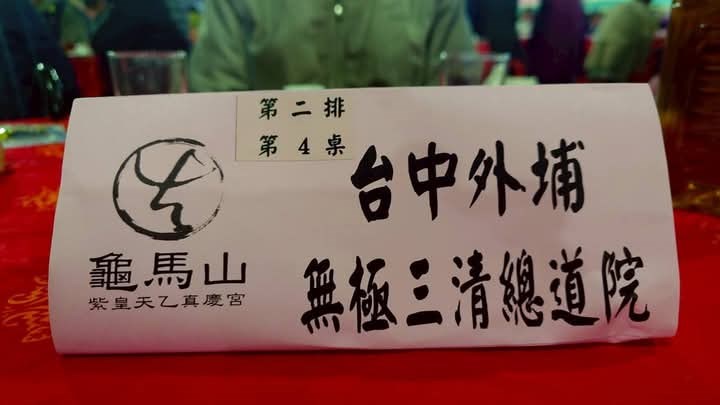 第二排
第4桌
台中外埔
無極三清總道院
龜馬山
紫皇天乙真慶宮